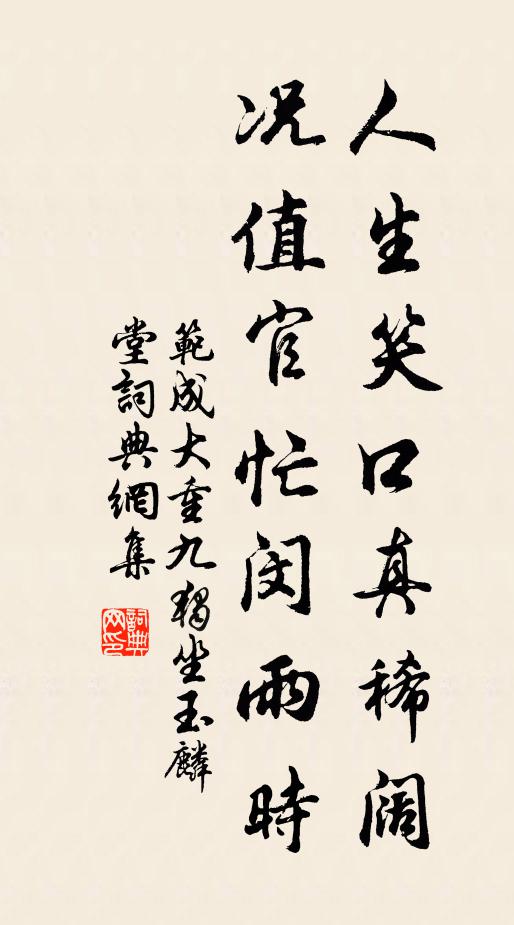 人生笑口真稀阔
况值官忙闵雨時
範成大重九獨坐玉麟
堂詞典網集
詞典网印